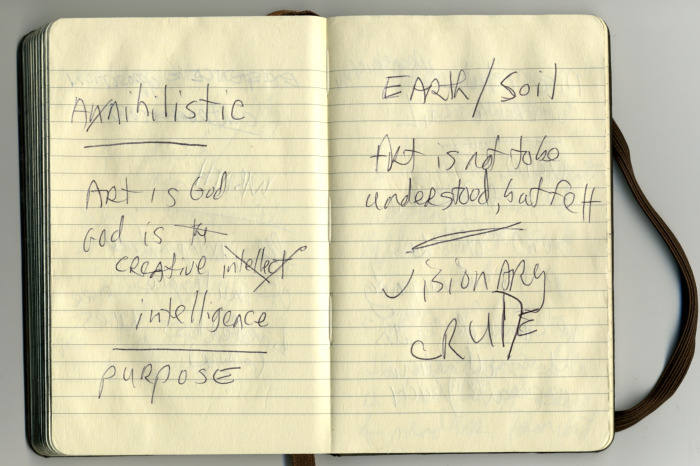 Annihilistic
ART is God
God is
CREATIVE intellect
intelligence
PURPOSE
EARth/Soil
ARt is not to be
understood, but felt
VisionARy
CRUDE